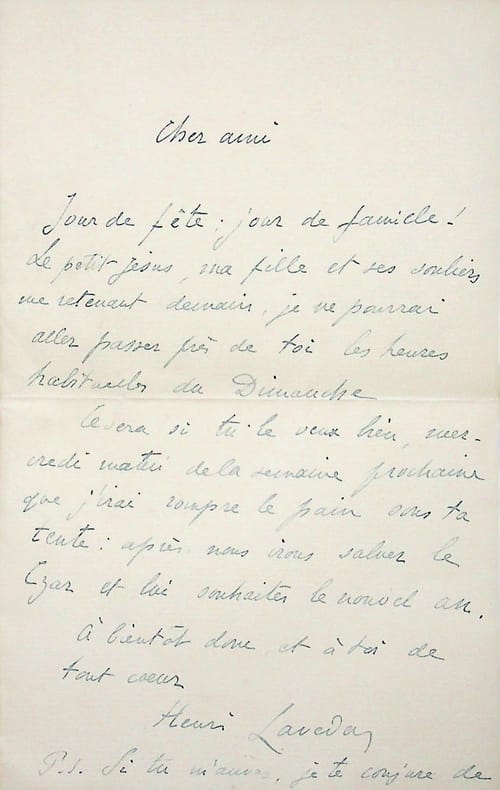 Cher ami
Jour de fête ; jour de famille !
Le petit Jésus, ma fille et ses souliers
me retenant demain, je ne pourrai
aller passer près de toi les heures
habituelles du Dimanche
Ce sera si tu le veux bien, mer-
credi matin de la semaine prochaine
que j'irai rompre le pain sous ta
tente : après nous irons saluer le
Czar et lui souhaiter le nouvel an.
À bientôt donc et à toi de
tout coeur
Henri Lavedan
P.S. Si tu m'aimes, je te conjure de